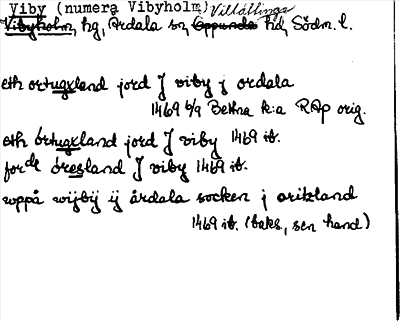 Viby (numera Vibyholm) Villåttinge
Vibyholm, hg, Årdala sn, Oppunda hd, Södm. l.
eth ortugxland jord J viby j ordala
1469 6/9 Bettna k:a RAp orig.
eth örtugxland jord J viby 1469 ib.
for de öresland J viby 1469 ib.
wppå wijbij ij årdala socken j oritzland
1469 ib. (baks, sen hand)